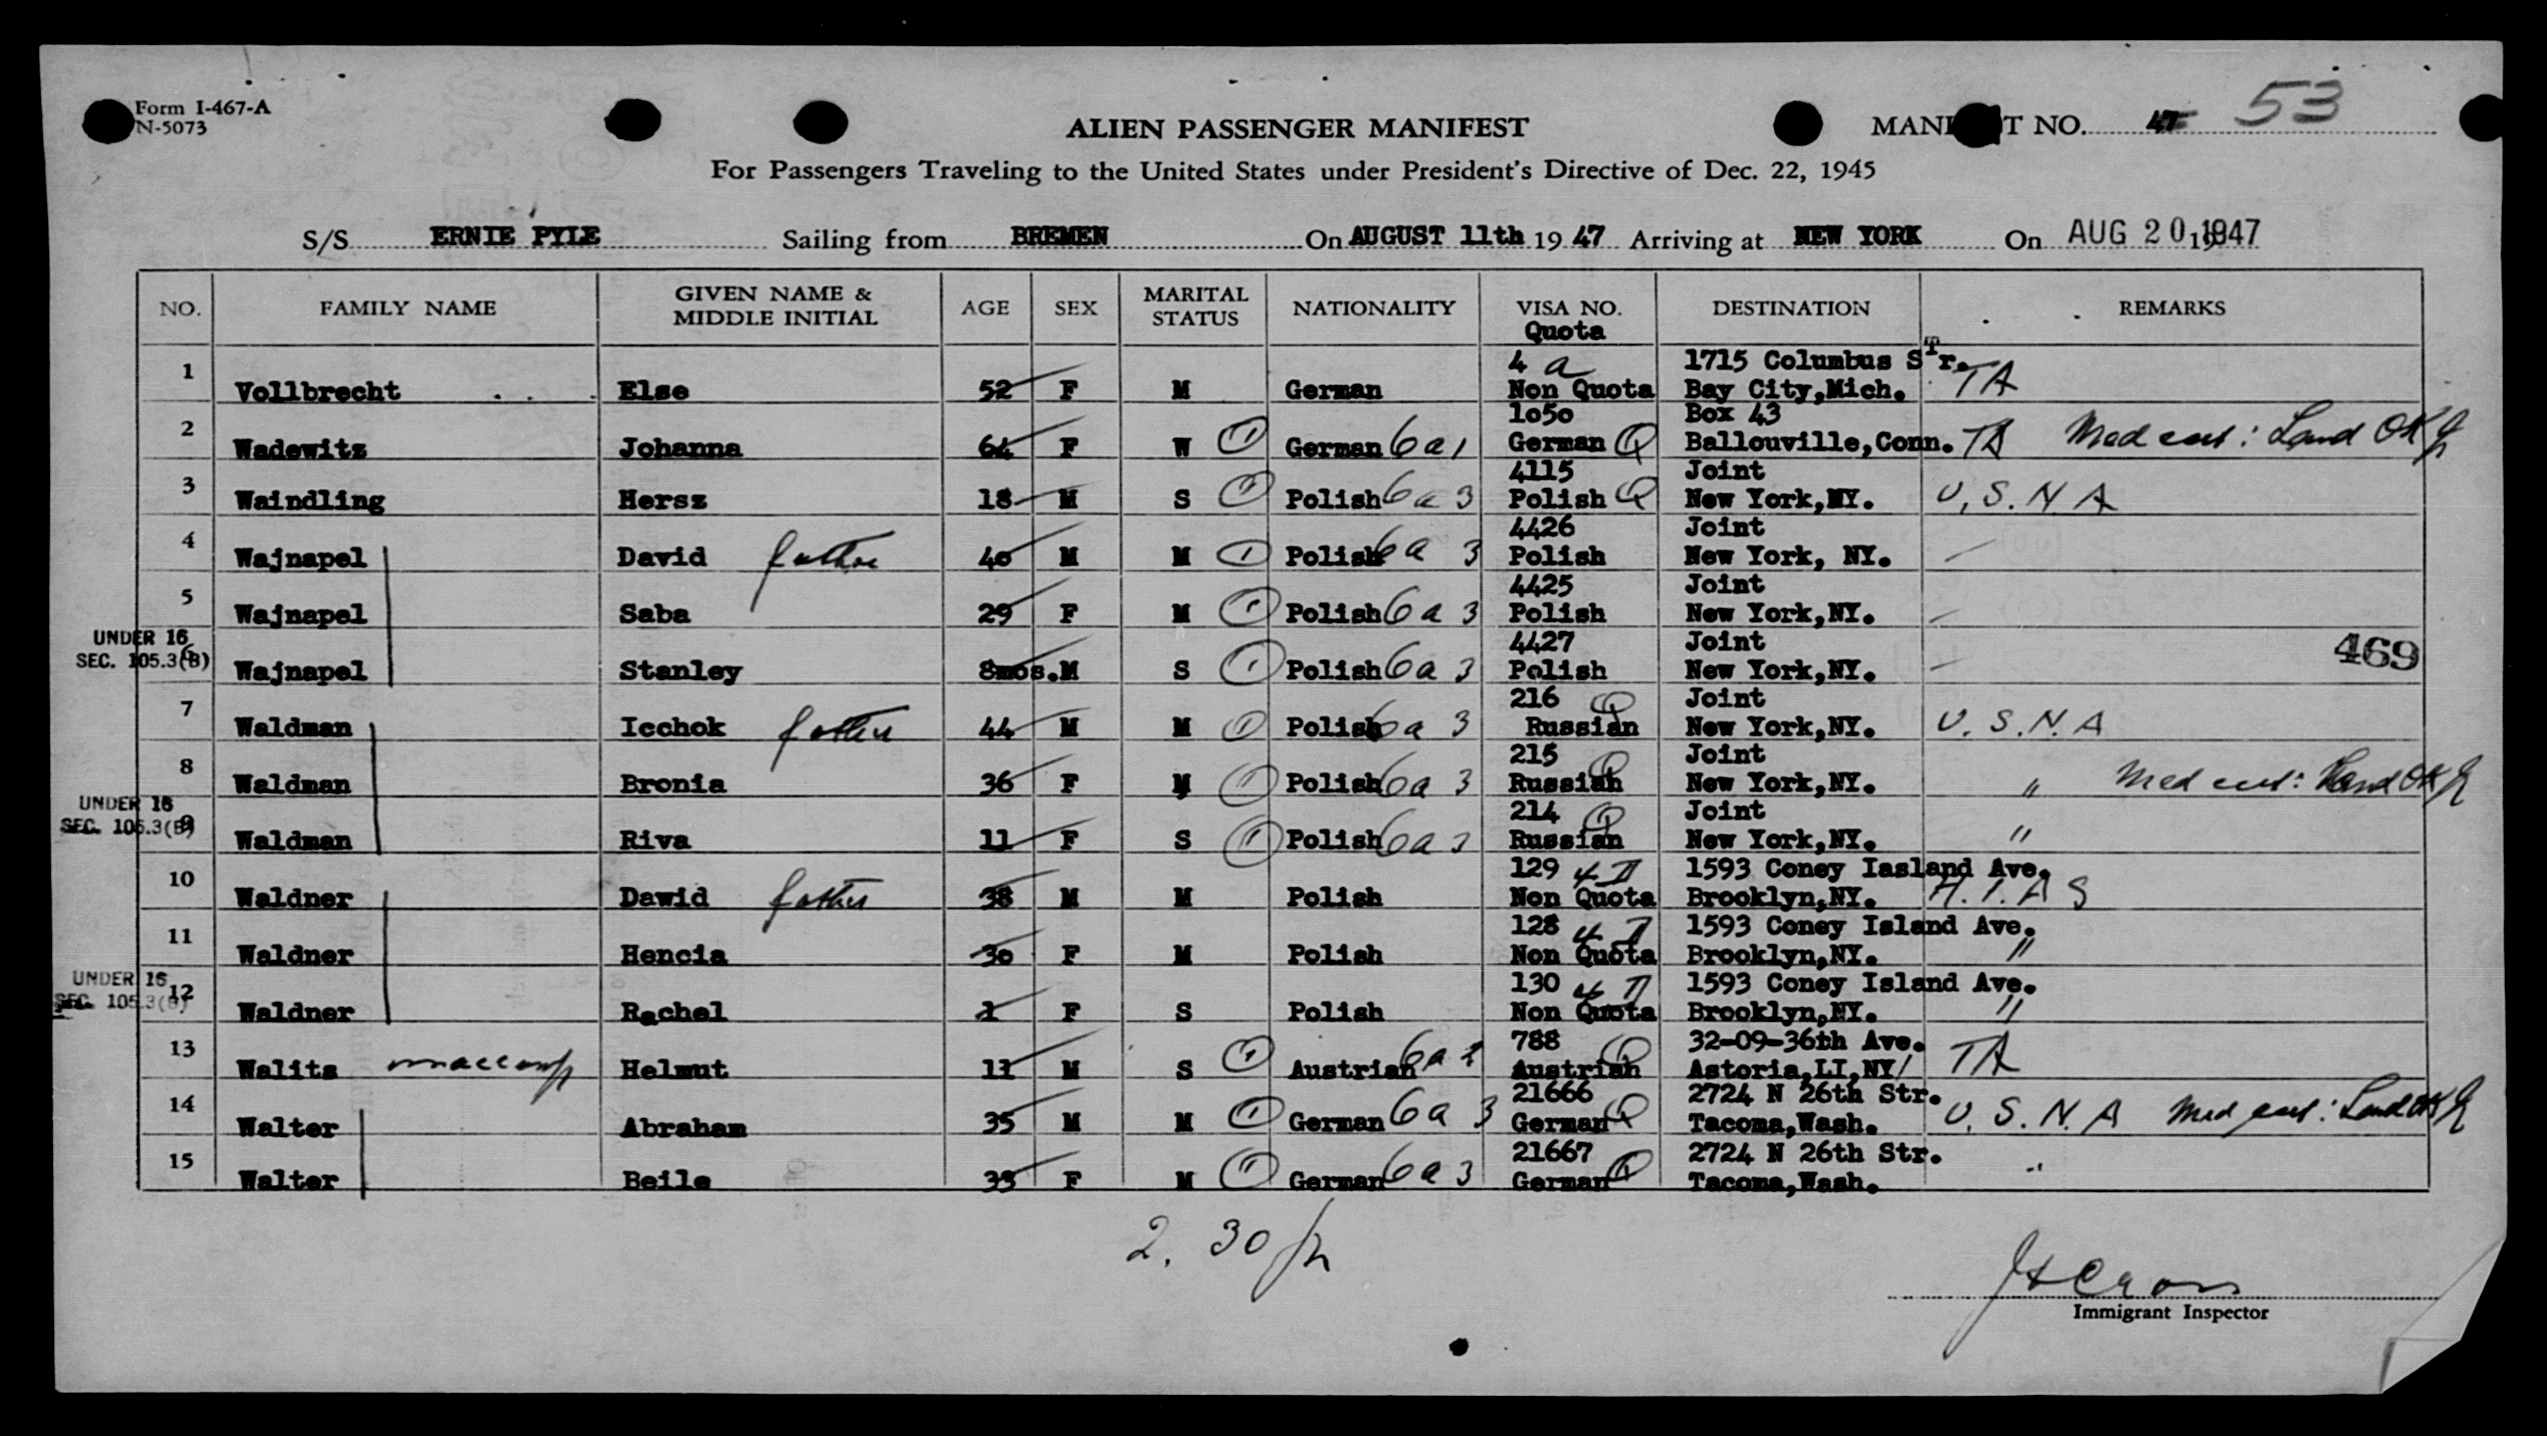 Form I-467-A
N-5073
ALIEN PASSENGER MANIFEST
MANI T NO. 47 53
For Passengers Traveling to the United States under President's Directive of Dec. 22, 1945
S/S ERNIE PYLE Sailing from BREMEN On AUGUST 11th 19 47 Arriving at NEW YORK On AUG 20 1947
NO. FAMILY NAME GIVEN NAME & MIDDLE INITIAL AGE SEX MARITAL STATUS NATIONALITY VISA NO. DESTINATION REMARKS
Quota
4 a 1715 Columbus STr.
1 Vollbrecht Else 52 F M German Non Quota Bay City,Mich. TA
1050 Box 43
2 Wadewitz Johanna 64 F W 1 German 6a1 German Q Ballouville,Conn. TA Med cert: Land OK
4115 Joint
3 Waindling Hersz 18 M S 1 Polish 6a3 Polish Q New York,NY. U.S.N A
4426 Joint
4 Wajnapel David father 40 M M 1 Polish 6a 3 Polish New York, NY. —
4425 Joint
5 Wajnapel Saba 29 F M 1 Polish 6a 3 Polish New York,NY. —
UNDER 16
SEC. 105.3(B)
4427 Joint 469
6 Wajnapel Stanley 8mos. M S 1 Polish 6a 3 Polish New York,NY. —
216 Q Joint
7 Waldman Icchok father 44 M M 1 Polish 6a 3 Russian New York,NY. U.S.N.A
215 Q Joint
8 Waldman Bronia 36 F M 1 Polish 6a 3 Russian New York,NY. " Med cert: Land OK
UNDER 16
SEC. 105.3(B)
214 Q Joint
9 Waldman Riva 11 F S 1 Polish 6a 3 Russian New York,NY. "
129 4 II 1593 Coney Iasland Ave.
10 Waldner Dawid father 38 M M Polish Non Quota Brooklyn,NY. H.I.A S
128 4 II 1593 Coney Island Ave.
11 Waldner Hencia 30 F M Polish Non Quota Brooklyn,NY. "
UNDER 16
SEC. 105.3(B)
130 4 II 1593 Coney Island Ave.
12 Waldner Rachel 1 F S Polish Non Quota Brooklyn,NY. "
788 Q 32-09-36th Ave.
13 Walita unaccomp Helmut 11 M S 1 Austrian 6a Austrian Astoria,LI,NY/ TA
21666 2724 N 26th Str.
14 Walter Abraham 35 M M 1 German 6a 3 German Q Tacoma,Wash. U.S.N.A Med cert: Land OK
21667 2724 N 26th Str.
15 Walter Beile 33 F M 1 German 6a 3 German Q Tacoma,Wash. "
2. 30
Immigrant Inspector